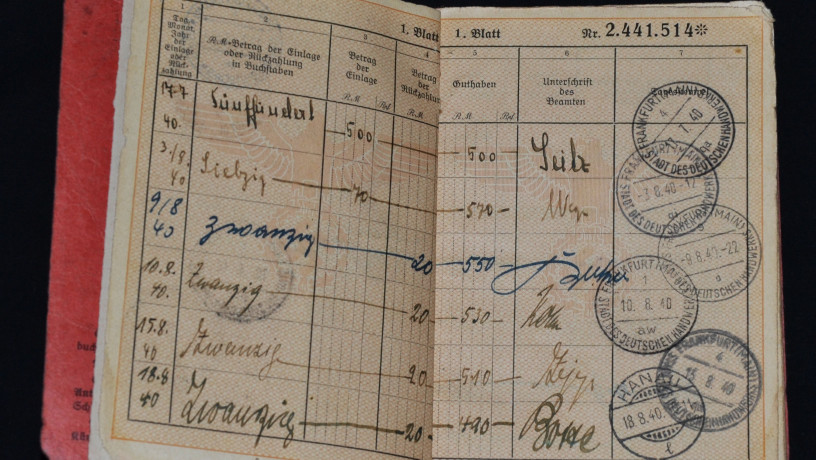 1. Blatt
1 2 3 4
Tag, Monat, Jahr der Einlage oder Rück-zahlung
R.M-Betrag der Einlage oder Rückzahlung in Buchstaben
Betrag der Einlage
Betrag der Rückzahlung
R.M Rpf R.M
17.7. 40. Fünfhundert 500
3./8. 40 Siebzig 70
9/8 40 Zwanzig 20
10.8. 40. Zwanzig 20
15.8. 40 Zwanzig 20
18.8 40 Zwanzig 20
1. Blatt Nr. 2.441.514*
5 6 7
Guthaben
Unterschrift des Beamten
R.M Rpf
500
570
550
530
510
490
FRANKFURT (MAIN)
7. 40
STADT DES DEUTSCHEN HANDWERKS
FRANKFURT (MAIN)
3.8.40.-12
STADT DES DEUTSCHEN HANDWERKS
FRANKFURT (MAIN)
-9.8.40.-22
DEUTSCHEN HANDWERKS
FRANKFURT (MAIN)
10. 8. 40
aw
STADT DES DEUTSCHEN HANDWERKS
FRANKFURT (MAIN)
4
15. 8. 40
DEUTSCHEN HANDWERKS
HANAU
18.8.40.